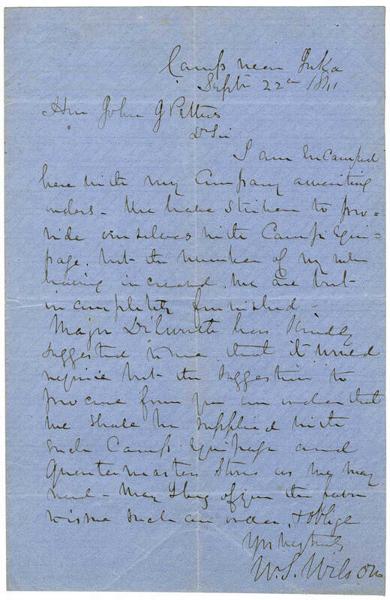 Camp near Iuka
Sept 22nd 1861
Hon John J Pettus
D Sir
I am Encamped
here with my Company awaiting
orders. We have striven to pro-
vide ourselves with Camp Equi-
page, but the number of my men
having increased, we are but
incompletely furnished.
Major Dilworth has kindly
suggested to me that it would
require but the suggestion to
procure from you an order that
we should be supplied with
such Camp Equipage and
Quartermasters Stores as we may
need - May I beg of you the favor
to issue such an order, & oblige
Yrs Respectfully
W. S. Wilson